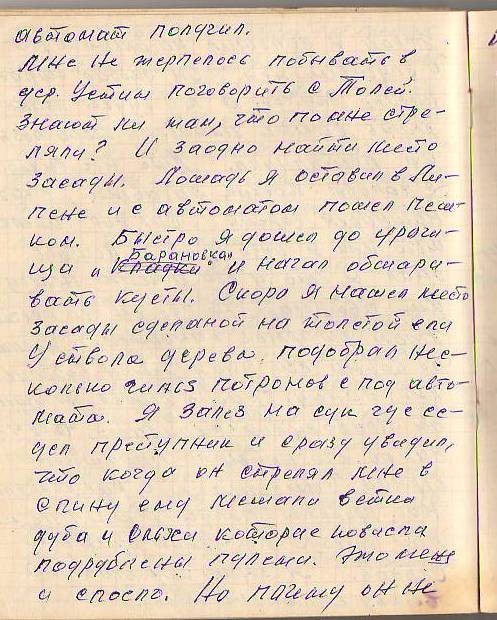 автомат получил.
Мне не терпелось побывать в
дер. Устин поговорить с Толей.
Знают ли там, что по мне стре-
ляли? И заодно найти место
засады. Лошадь я оставил в Ли-
пене и с автоматом пошел пеш-
ком. Быстро я дошел до урочи-
Барановка"
ща „ и начал обшари-
вать кусты. Скоро я нашел место
засады сделаной на толстой ели
У ствола дерева, подобрал нес-
колько гильз потронов с под авто-
мата. Я залез на сук где се-
дел преступник и сразу увидил,
что когда он стрелял мне в
спину ему мешали ветки
дуба и ольхи которые повисли
подрублены пулеми. Это меня
и спосло. Но почему он не